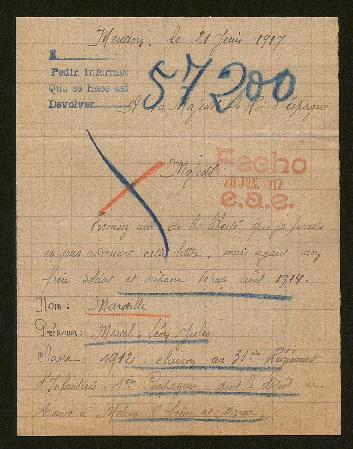 Meudon, le 21 Juin 1917
Pedir informes
Que se hace así
Devolver
57200
A Sa Majesté le Roi d'Espagne
Majesté
Fecho
28 JUN. 1917
e.a.e.
Excusez moi de la liberté que je prends
en vous adressant cette lettre, mais ayant mon
frère soldat et disparu depuis août 1914.
Nom: Marseille
Prénoms: Marcel, Léon, Jules
Classe 1912, clairon au 31ème Régiment
d'Infanterie, 1ère Compagnie dont le dépôt se
trouve à Melun, Seine et Marne,